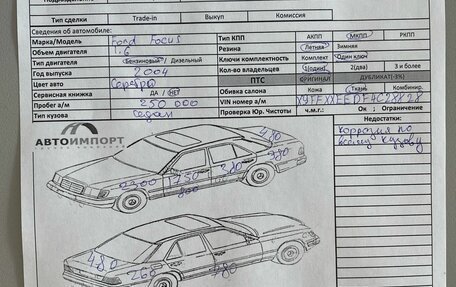 Тип сделки Trade-in Выкуп Комиссия
Сведения об автомобиле:
Марка/Модель Ford Focus Тип КПП АКПП МКПП РКПП
Объем двигателя 1.6 Резина Летняя Зимняя
Тип двигателя Бензиновый / Дизельный Ключи комплектность Комплект Один ключ
Год выпуска 2004 Кол-во владельцев 1(один) 2(два) 3 и более
Цвет авто Серебро ПТС ОРИГИНАЛ ДУБЛИКАТ(-3%)
Сервисная книжка ДА / НЕТ Обивка салона Кожа Ткань Комбинир.
Пробег а/м 250 000 VIN номер а/м
Тип кузова Седан Проверка Юр. Чистоты ч.м.г.: Ок ; Ограничение
АВТОИМПОРТ
Недостатки:
Коррозия по
всему кузову
480
2300 750 380 980
800
480 268 780